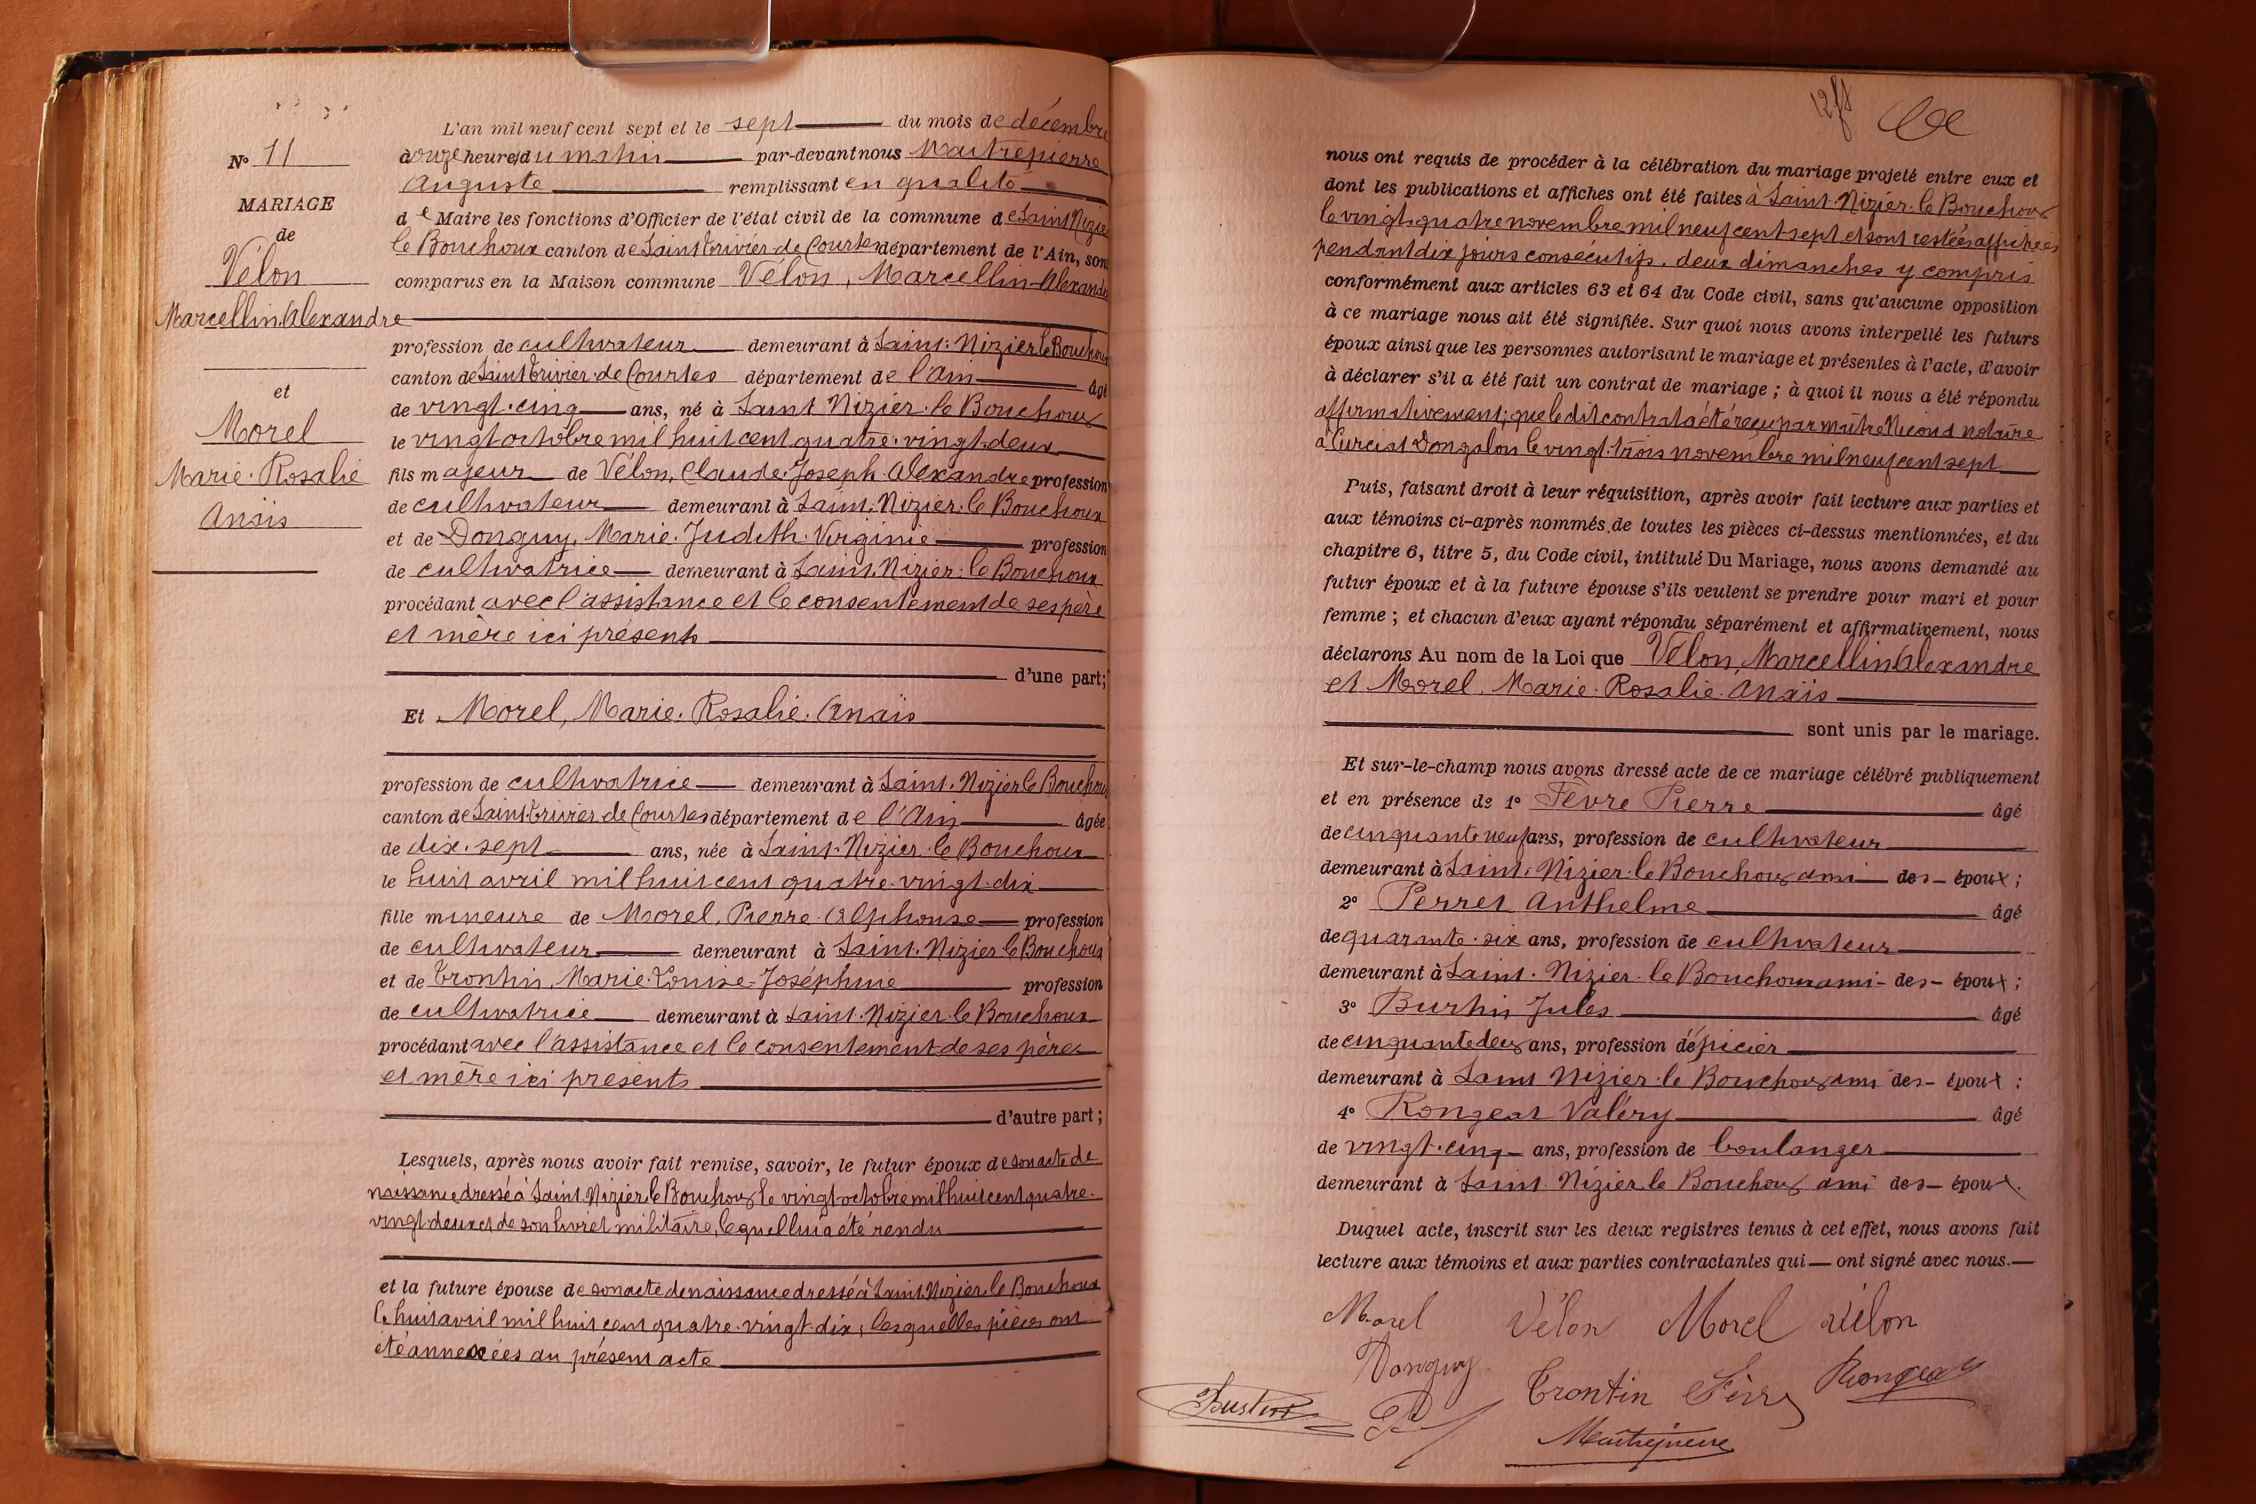 N° 11
MARIAGE
de
Vélon
Marcellin Alexandre
et
Morel
Marie-Rosalie
Anaïs
L'an mil neuf cent sept et le sept du mois de décembre
à onze heures du matin par-devant nous Maitrepierre
Auguste remplissant en qualité
de Maire les fonctions d'Officier de l'état civil de la commune de Saint Nizier
le Bouchoux canton de Saint Trivier-de Courtes département de l'Ain, sont
comparus en la Maison commune Vélon, Marcellin-Alexandre
profession de cultivateur demeurant à Saint-Nizier le Bouchoux
canton de Saint Trivier-de Courtes département de l'Ain âgé
de vingt-cinq ans, né à Saint Nizier-le Bouchoux
le vingt octobre mil huit cent quatre-vingt-deux
fils majeur de Vélon, Claude-Joseph-Alexandre profession
de cultivateur demeurant à Saint-Nizier-le Bouchoux
et de Donguy, Marie-Judith-Virginie profession
de cultivatrice demeurant à Saint-Nizier-le Bouchoux
procédant avec l'assistance et le consentement de ses père
et mère ici présents
d'une part;
Et Morel, Marie-Rosalie-Anaïs
profession de cultivatrice demeurant à Saint-Nizier le Bouchoux
canton de Saint-Trivier de Courtes département de l'Ain âgée
de dix-sept ans, née à Saint-Nizier-le Bouchoux
le huit avril mil huit cent quatre-vingt-dix
fille mineure de Morel, Pierre-Alphonse profession
de cultivateur demeurant à Saint-Nizier le Bouchoux
et de Trontin, Marie-Louise-Joséphine profession
de cultivatrice demeurant à Saint-Nizier-le Bouchoux
procédant avec l'assistance et le consentement de ses père
et mère ici présents
d'autre part;
Lesquels, après nous avoir fait remise, savoir, le futur époux de son acte de
naissance dressé à Saint Nizier le Bouchoux le vingt octobre mil huit cent quatre-
vingt-deux et de son livret militaire, lequel lui a été rendu
et la future épouse de son acte de naissance dressé à Saint Nizier le Bouchoux
le huit avril mil huit cent quatre-vingt-dix, lesquelles pièces ont
été annexées au présent acte
nous ont requis de procéder à la célébration du mariage projeté entre eux et
dont les publications et affiches ont été faites à Saint-Nizier-le Bouchoux
le vingt-quatre novembre mil neuf cent sept et sont restées affichées
pendant dix jours consécutifs, deux dimanches y compris
conformément aux articles 63 et 64 du Code civil, sans qu'aucune opposition
à ce mariage nous ait été signifiée. Sur quoi nous avons interpellé les futurs
époux ainsi que les personnes autorisant le mariage et présentes à l'acte, d'avoir
à déclarer s'il a été fait un contrat de mariage; à quoi il nous a été répondu
affirmativement; que le dit contrat a été reçu par maître Nicoud notaire
à Curciat Dongalon le vingt-trois novembre mil neuf cent sept
Puis, faisant droit à leur réquisition, après avoir fait lecture aux parties et
aux témoins ci-après nommés de toutes les pièces ci-dessus mentionnées, et du
chapitre 6, titre 5, du Code civil, intitulé Du Mariage, nous avons demandé au
futur époux et à la future épouse s'ils veulent se prendre pour mari et pour
femme; et chacun d'eux ayant répondu séparément et affirmativement, nous
déclarons Au nom de la Loi que Vélon, Marcellin Alexandre
et Morel, Marie-Rosalie-Anaïs
sont unis par le mariage.
Et sur-le-champ nous avons dressé acte de ce mariage célébré publiquement
et en présence de 1° Fèvre Pierre âgé
de cinquante neuf ans, profession de cultivateur
demeurant à Saint-Nizier-le Bouchoux ami des époux;
2° Perret Anthelme âgé
de quarante-six ans, profession de cultivateur
demeurant à Saint-Nizier-le Bouchoux ami des époux;
3° Burtin Jules âgé
de cinquante deux ans, profession d'épicier
demeurant à Saint Nizier-le Bouchoux ami des époux;
4° Rongeat Valéry âgé
de vingt-cinq ans, profession de boulanger
demeurant à Saint Nizier le Bouchoux ami des époux.
Duquel acte, inscrit sur les deux registres tenus à cet effet, nous avons fait
lecture aux témoins et aux parties contractantes qui ont signé avec nous.
Morel Vélon Morel Vélon
Donguy Trontin Fèvre Rongeat
Burtin
Maitrepierre